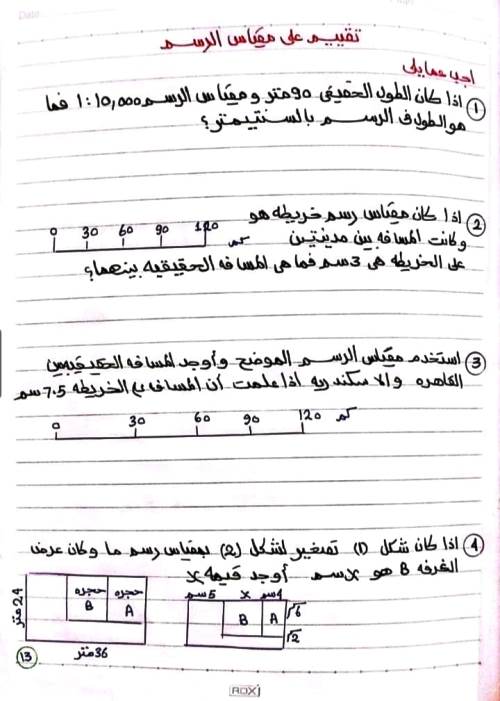 Date
تقييم على مقياس الرسم
اجب عما يلى
① اذا كان الطول الحقيقى 90 متر ومقياس الرسم 1:10,000 فما
هو الطول فى الرسم بالسنتيمتر؟
② اذا كان مقياس رسم خريطه هو
0 30 60 90 120 كم
وكانت المسافه بين مدينتين
على الخريطه هى 3 سم فما هى المسافه الحقيقيه بينهما؟
③ استخدم مقياس الرسم الموضح وأوجد المسافه الحقيقيه بين
القاهره والاسكندريه اذا علمت أن المسافه على الخريطه 7.5 سم
0 30 60 90 120 كم
④ اذا كان شكل (1) تصغير لشكل (2) بمقياس رسم ما وكان عرض
الغرفه B هو x سم أوجد قيمه x
حجره B
حجره A
24 متر
36 متر
5 سم x 4 سم
B A
6 سم
2 سم
13
ROX